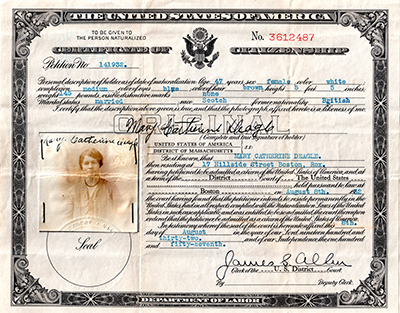 THE UNITED STATES OF AMERICA
TO BE GIVEN TO
THE PERSON NATURALIZED
No. 3612487
CERTIFICATE OF
Petition No 141932.
Personal description of holder as of date of naturalization: Age 47 years; sex female color white
complexion medium color of eyes blue color of hair brown height 5 feet 5 inches;
weight 145 pounds; visible distinctive marks none
Marital status married race Scotch former nationality British
I certify that the description above given is true, and that the photograph affixed hereto is a likeness of me
ORIGINAL
Mary Catherine Deagle
(Complete and true signature of holder)
UNITED STATES OF AMERICA
DISTRICT OF MASSACHUSETTS
Be it known, that MARY CATHERINE DEAGLE,
then residing at 17 Hillside Street Boston, Rox.
having petitioned to be admitted a citizen of the United States of America, and at
a term of the District Court of The United States
held pursuant to law at
Boston on August 8th, 32
the court having found that the petitioner intends to reside permanently in the
United States, had in all respects complied with the Naturalization Laws of the United
States in such case applicable, and was entitled to be so admitted, the court thereupon
ordered that the petitioner be admitted as a citizen of the United States of America.
In testimony whereof the seal of the court is hereunto affixed this 8th.
day of August in the year of our Lord nineteen hundred and
thirty-two, and of our Independence the one hundred
and fifty-seventh.
James S. Allen
Clerk of the U. S. District Court.
By Deputy Clerk.
Mary Catherine
Seal
DEPARTMENT OF LABOR